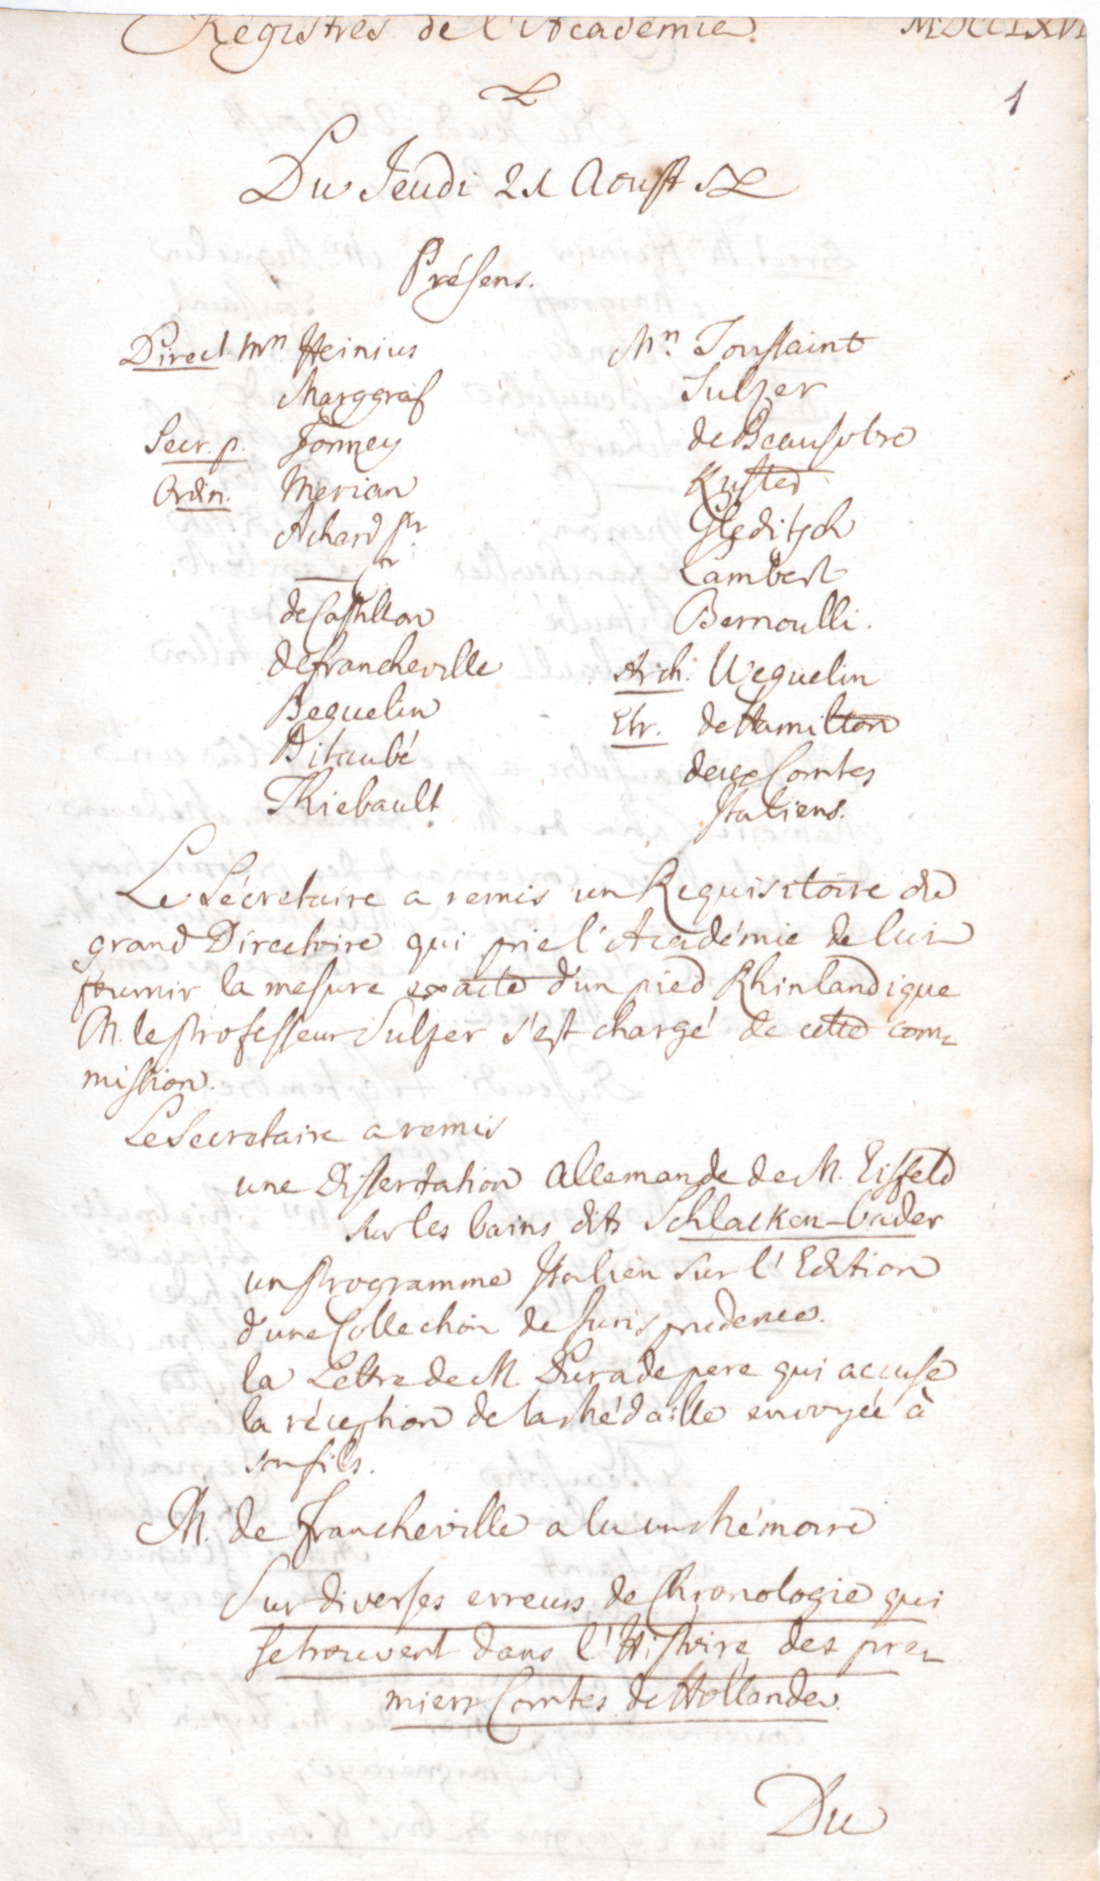 Régistres de l'Académie.
MDCCLXVI
1
Du Jeudi 21 Aoust
Présens.
Direct. Mrs Heinius
Marggraf
Secr. p. Formey
Ordin. Merian
Achard Sr
— — Jr
de Castillon
de Francheville
Beguelin
Bitaubé
Thiebault
Mrs. Toussaint
Sulzer
de Beausobre
Kuster
Gleditsch
Lambert
Bernoulli.
Arch. Weguelin
Etr. de Hamilton
deux Comtes
Italiens.
Le Sécretaire a remis un Requisitoire du
grand Directoire qui prie l'Académie de lui
fournir la mesure exacte d'un pied Rhinlandique
M. le Professeur Sulzer s'est chargé de cette com-
mission.
Le Secretaire a remis
une Dissertation Allemande de M. Eisfeld
sur les bains dits Schlacken-bäder
un Programme Italien sur l'Edition
d'une Collection de Jurisprudence.
la Lettre de M. Durade pere qui accuse
la réception de la Médaille envoyée à
son fils.
M. de Francheville a lu un Mémoire
Sur diverses erreurs de Chronologie qui
se trouvent dans l'Histoire des pre-
miers Comtes de Hollande.
Du